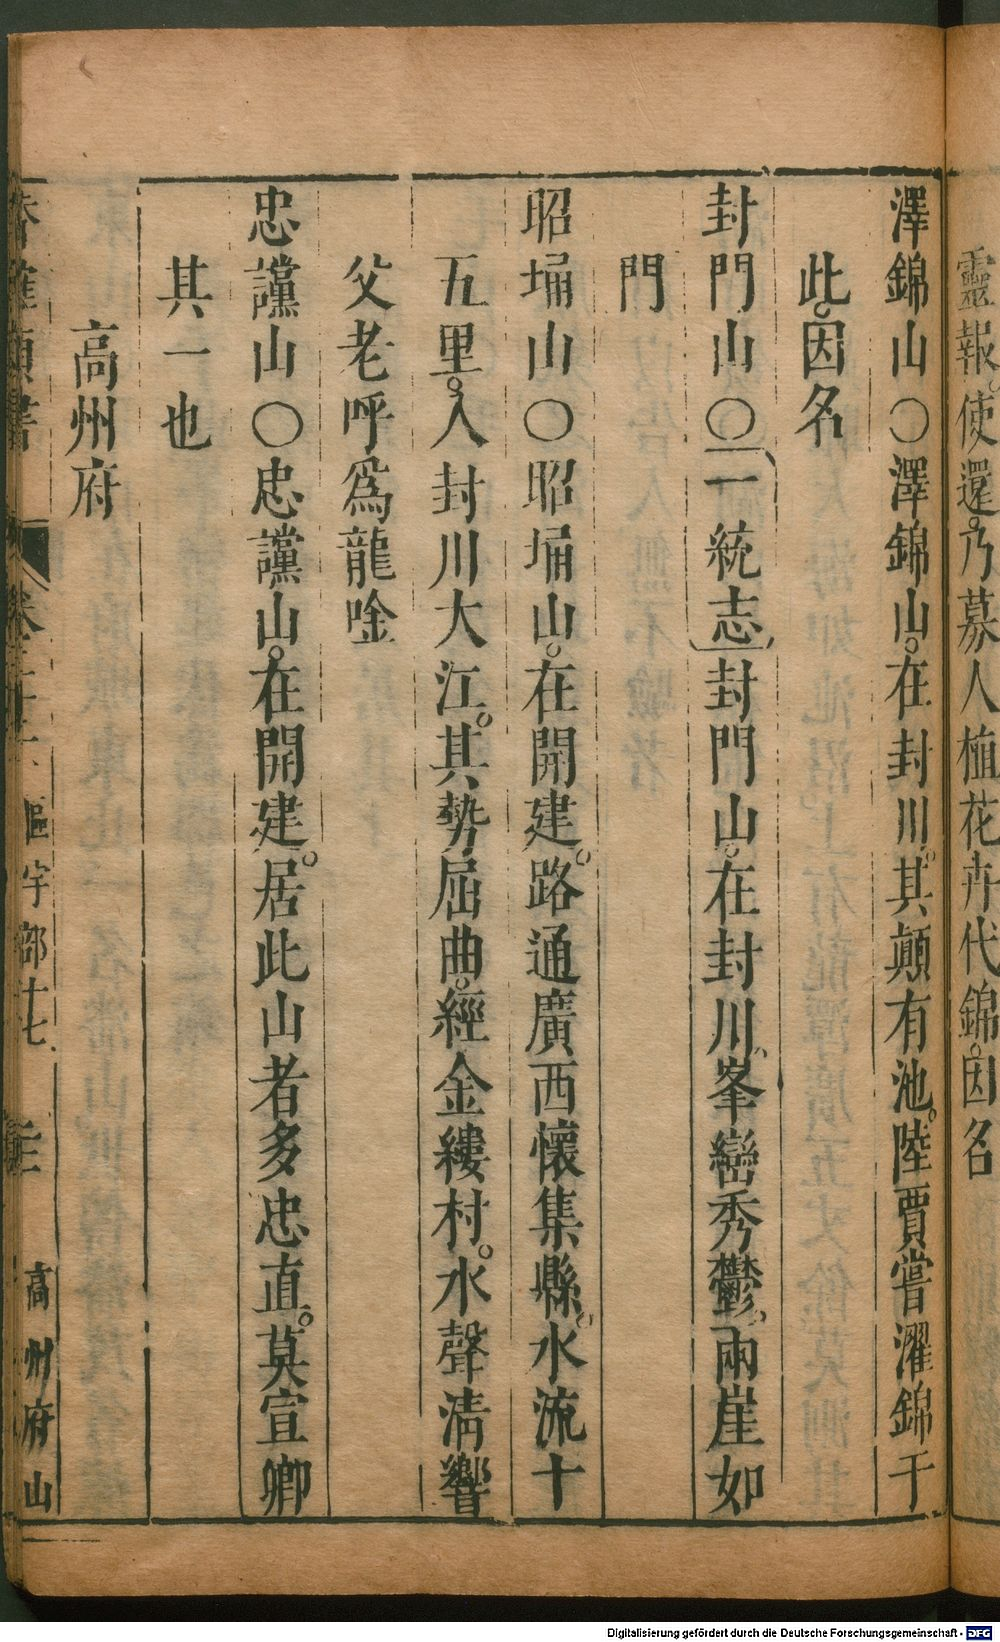 靈報。使還。乃募人植花卉代錦。因名
澤錦山○澤錦山。在封川。其顛有池。陸賈嘗濯錦于
此。因名
封門山○一統志封門山。在封川。峯巒秀鬱。兩崖如
門
昭埇山○昭埇山。在開建。路通廣西懷集縣。水流十
五里。入封川大江。其勢屈曲。經金縷村。水聲清響
父老呼爲龍唫
忠讜山○忠讜山。在開建。居此山者多忠直。莫宣卿
其一也
高州府
卷
字部十七
高州府山
Digitalisierung gefördert durch die Deutsche Forschungsgemeinschaft - DFG